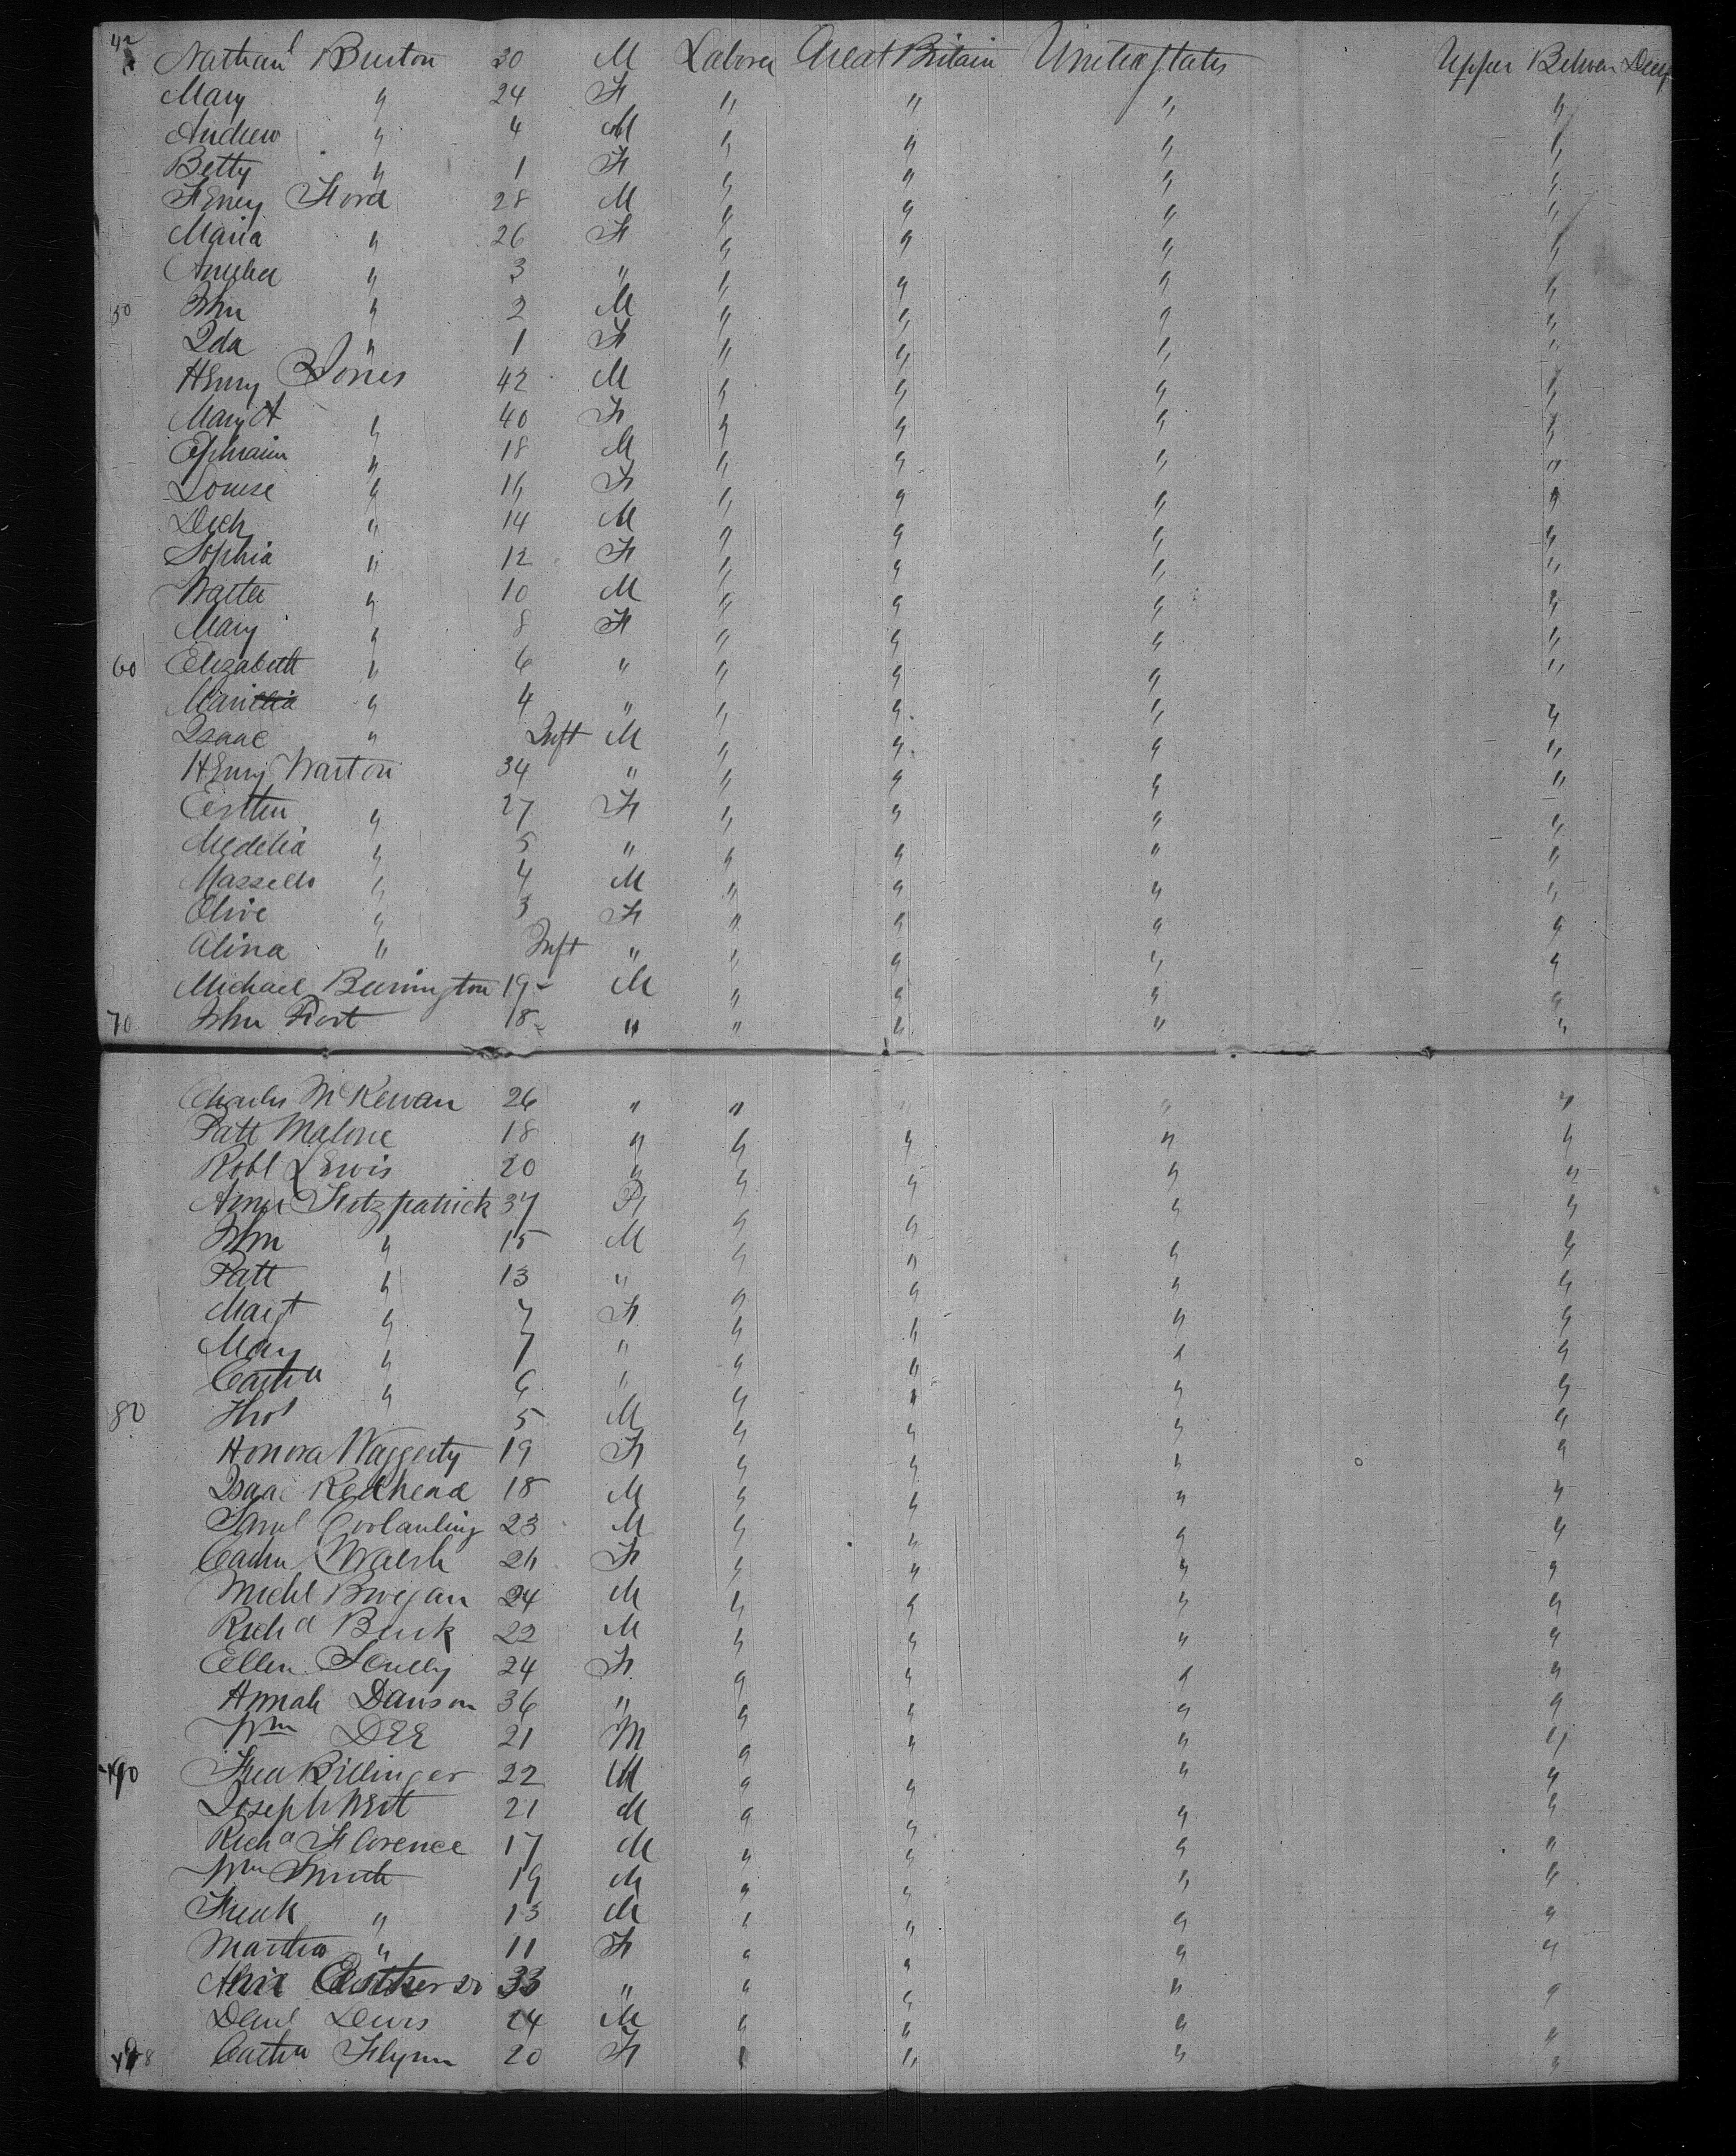 42 Nathanl Burton 30 M Laborer Great Britain United States Upper Between Deck
Mary " 24 F " " " "
Andrew " 4 M " " " "
Betty " 1 F " " " "
Henry Ford 28 M " " " "
Maria " 26 F " " " "
Amelia " 3 " " " " "
50 John " 2 M " " " "
Ida " 1 F " " " "
Henry Jones 42 M " " " "
Mary A " 40 F " " " "
Ephraim " 18 M " " " "
Louise " 16 F " " " "
Dick " 14 M " " " "
Sophia " 12 F " " " "
Walter " 10 M " " " "
Mary " 8 F " " " "
60 Elizabeth " 6 " " " " "
" 4 " " " " "
Isaac " Inft M " " " "
Henry Warton 34 " " " " "
Esther " 27 F " " " "
Medelia " 5 " " " " "
Massello " 4 M " " " "
Olive " 3 F " " " "
Alina " Inft " " " " "
Michael Bunington 19 M " " " "
70 John Post 18 " " " " "
Charles McKewan 26 " " " " "
Patt Malone 18 " " " " "
Robt Lewis 20 " " " " "
Anne Fitzpatrick 37 F " " "
John " 15 M " " " "
Patt " 13 " " " " "
Margt " 9 F " " " "
Mary " 7 " " " " "
Cathn " 6 " " " " "
80 Thos 5 M " " " "
Honora Haggerty 19 F " " " "
Isaac Redhead 18 M " " " "
Saml 23 M " " " "
Cathn Walsh 26 F " " " "
Michl Brogan 24 M " " " "
Richd Burk 22 M " " " "
Ellen Scully 24 F " " " "
Annah Dawson 36 " " " " "
Wm DEE 21 M " " " "
90 Fred Billinger 22 M " " " "
Joseph West 21 M " " " "
Richd Florence 17 M " " " "
Wm Smith 19 M " " " "
Frank " 13 M " " " "
Martha " 11 F " " " "
33 " " " " "
Danl Lewis 24 M " " " "
98 Cathn Flynn 20 F " " " "